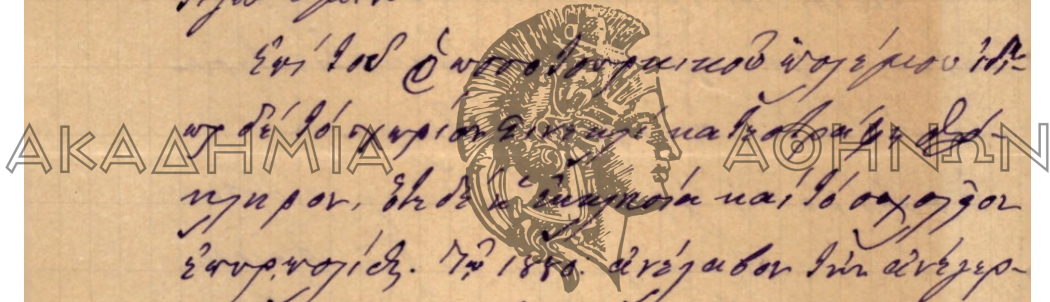 Ἐπὶ τοῦ Ῥωσσοτουρκικοῦ πολέμου ἰδί-
ως δὲ τὸ χωρίον κατεστράφη ὁλό-
κληρον, ἔτι δὲ ἡ ἐκκλησία καὶ τὸ σχολεῖον
ἐπυρπολήθη. Τῷ 1880 ἀνέλαβον τὴν ἀνέγερ-
ΑΚΑΔΗΜΙΑ ΑΘΗΝΩΝ